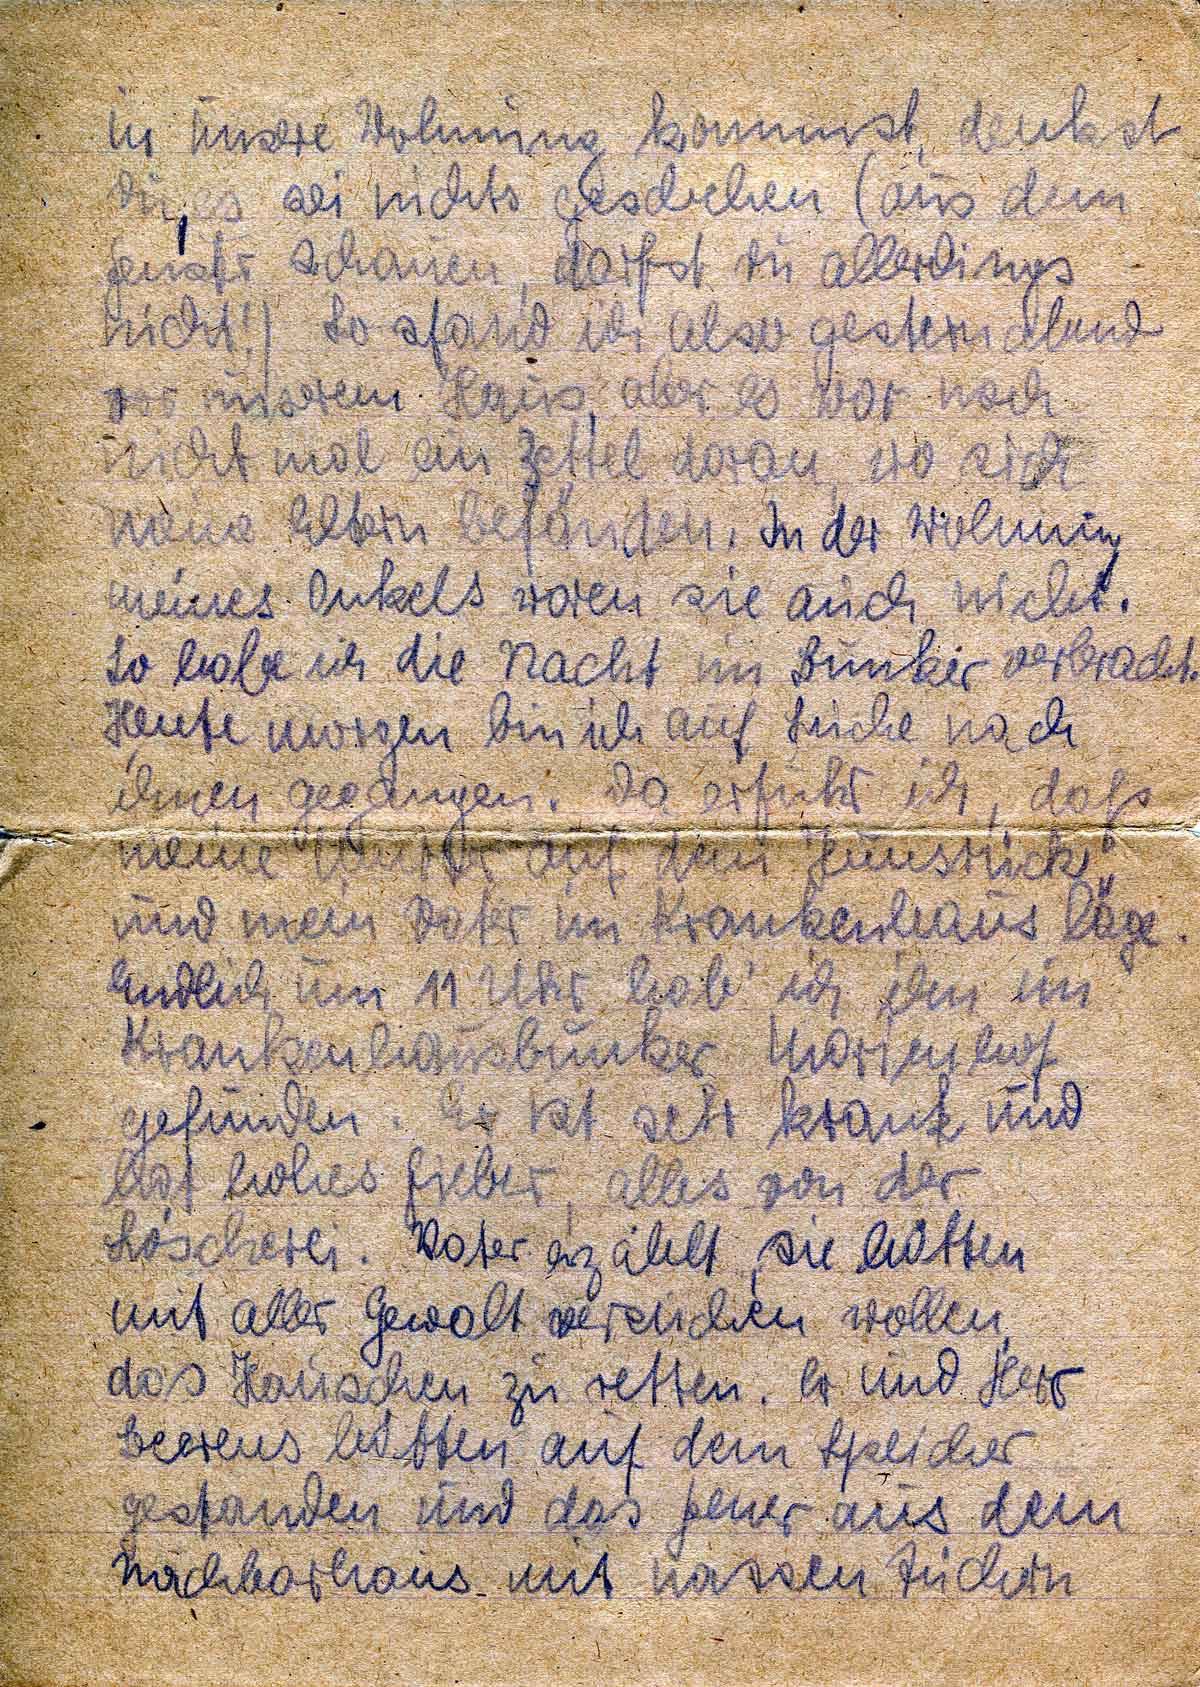 in unsere Wohnung kommst, denkst
Du, es sei nichts geschehen (aus dem
Fenster schauen, darfst Du allerdings
nicht!) So stand ich also gestern abend
vor unserem Haus, aber es war noch
nicht mal ein Zettel daran, wo sich
meine Eltern befänden. In der Wohnung
meines Onkels waren sie auch nicht.
So habe ich die Nacht im Bunker verbracht.
Heute morgen bin ich auf Suche nach
ihnen gegangen. Da erfuhr ich, daß
meine Mutter auf dem "Hunsrück"
und mein Vater im Krankenhaus läge.
Endlich um 11 Uhr hab' ich ihn im
Krankenhausbunker Marienhof
gefunden. Er ist sehr krank und
hat hohes Fieber, alles von der
Löscherei. Vater erzählt, sie hätten
mit aller Gewalt versuchen wollen,
das Häuschen zu retten. Er und Herr
Beerens hätten auf dem Speicher
gestanden und das Feuer aus dem
Nachbarhaus mit nassen Tüchern